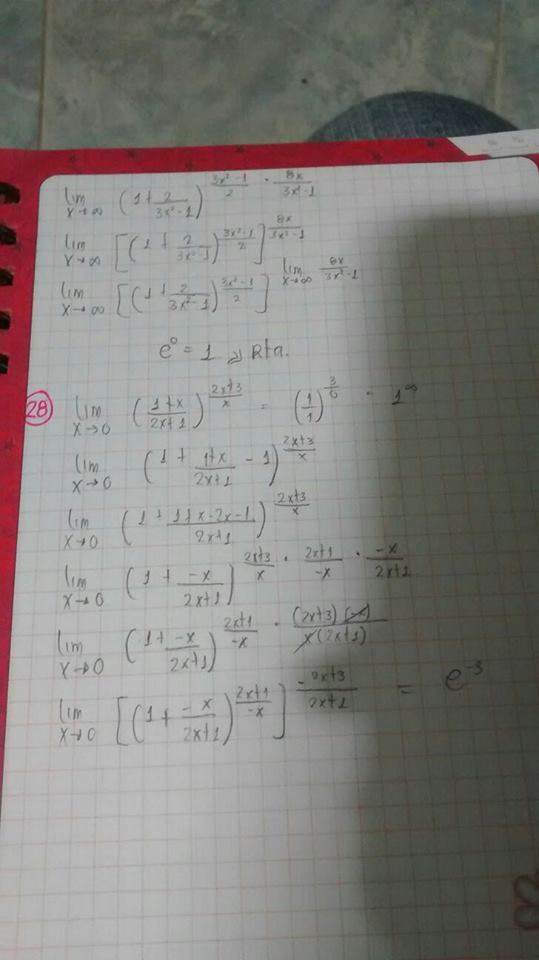 lim x→∞ (1+2/(3x²-1))^((3x²-1)/2 · 8x/(3x²-1))
lim x→∞ [(1+2/(3x²-1))^((3x²-1)/2)]^(8x/(3x²-1))
lim x→∞ [(1+2/(3x²-1))^((3x²-1)/2)]^(lim x→∞ 8x/(3x²-1))
e⁰ = 1 Rta.
28 lim x→0 ((1+x)/(2x+1))^((2x+3)/x) = (1/1)^(3/0) = 1^∞
lim x→0 (1+(1+x)/(2x+1)-1)^((2x+3)/x)
lim x→0 (1+(1+x-2x-1)/(2x+1))^((2x+3)/x)
lim x→0 (1+(-x)/(2x+1))^((2x+3)/x · (2x+1)/(-x) · (-x)/(2x+1))
lim x→0 (1+(-x)/(2x+1))^((2x+1)/(-x) · (2x+3)(-x)/(x(2x+1)))
lim x→0 [(1+(-x)/(2x+1))^((2x+1)/(-x))]^(-(2x+3)/(2x+1)) = e⁻³